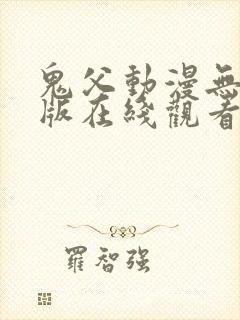 鬼父動漫無
版在綫觀看
羅智强